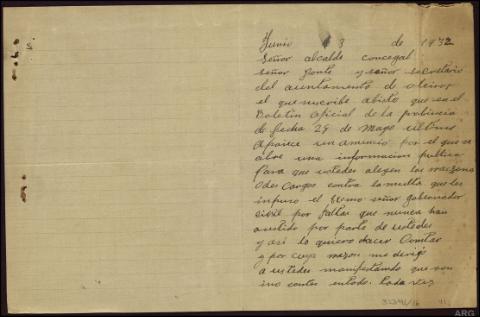 Junio 3 de 1932
Señor alcalde concegal
señor Jonte y señor secretario
del aiuntamento de oteiro,
el que suscribe abisto que en el
Boletin oficial de la probincia
de fecha 29 de Mayo ultimo
aparece un anuncio por el que se
abre una informacion publica
Para que ustedes alegen las
Odes Cargos contra la multa que les
impuso el señor gobernador
cibil por faltas que nunca han
por parte de ustedes
y asi lo quiero hacer Constar
y por cuya razon me dirijo
a ustedes manifestando que son
todo. toda vez
32396/16
ARG